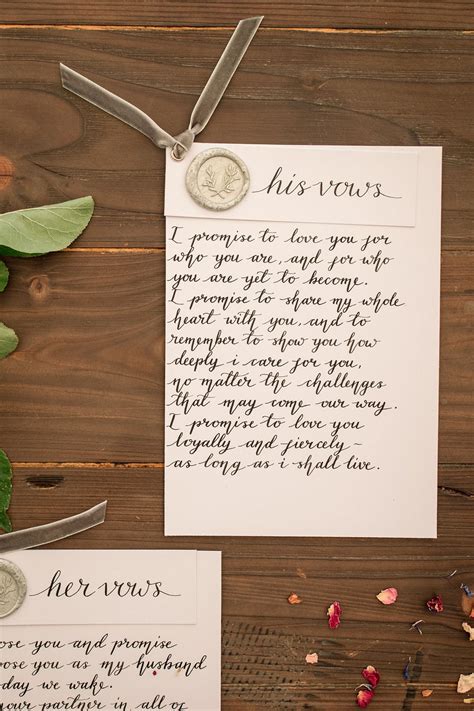 his vows
I promise to love you for
who you are, and for who
you are yet to become.
I promise to share my whole
heart with you, and to
remember to show you how
deeply i care for you,
no matter the challenges
that may come our way.
I promise to love you
loyally and fiercely ~
as long as i shall live.
her vows
ose you and promise
ose you as my husband
day we wake.
your partner in all of